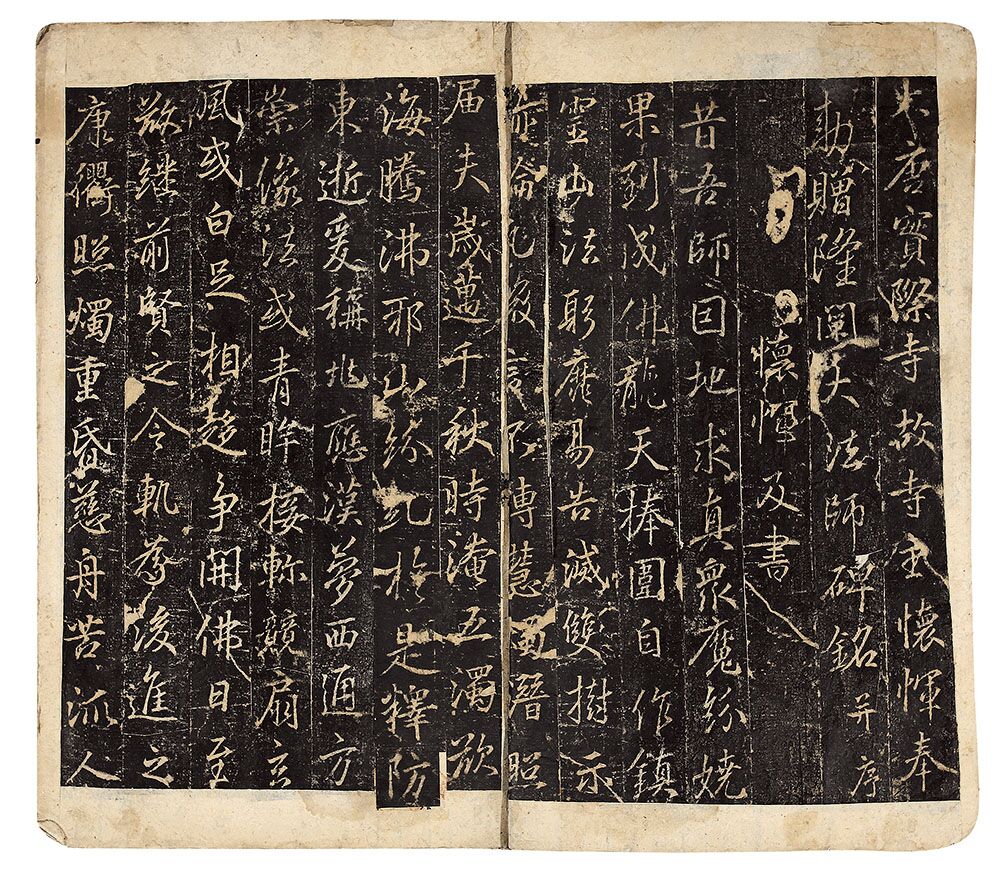 大唐實際寺故寺主懷惲奉
勅贈隆闡大法師碑銘并序
懷惲及書
昔吾師因地求真眾魔紛嬈
果到成佛龍天捧圍自作鎮
靈山法躬靡易告滅雙樹示
淪傳慧潛照
届夫歲邁千秋時淹五濁欲
海騰沸邪山紛糺於是釋防
東逝爰稱兆應漢夢西通方
崇像法或青眸接軫競扇玄
風或白足相趍爭開佛日至
繼前賢之令軌為後進之
康衢照燭重昏慈舟苦派人